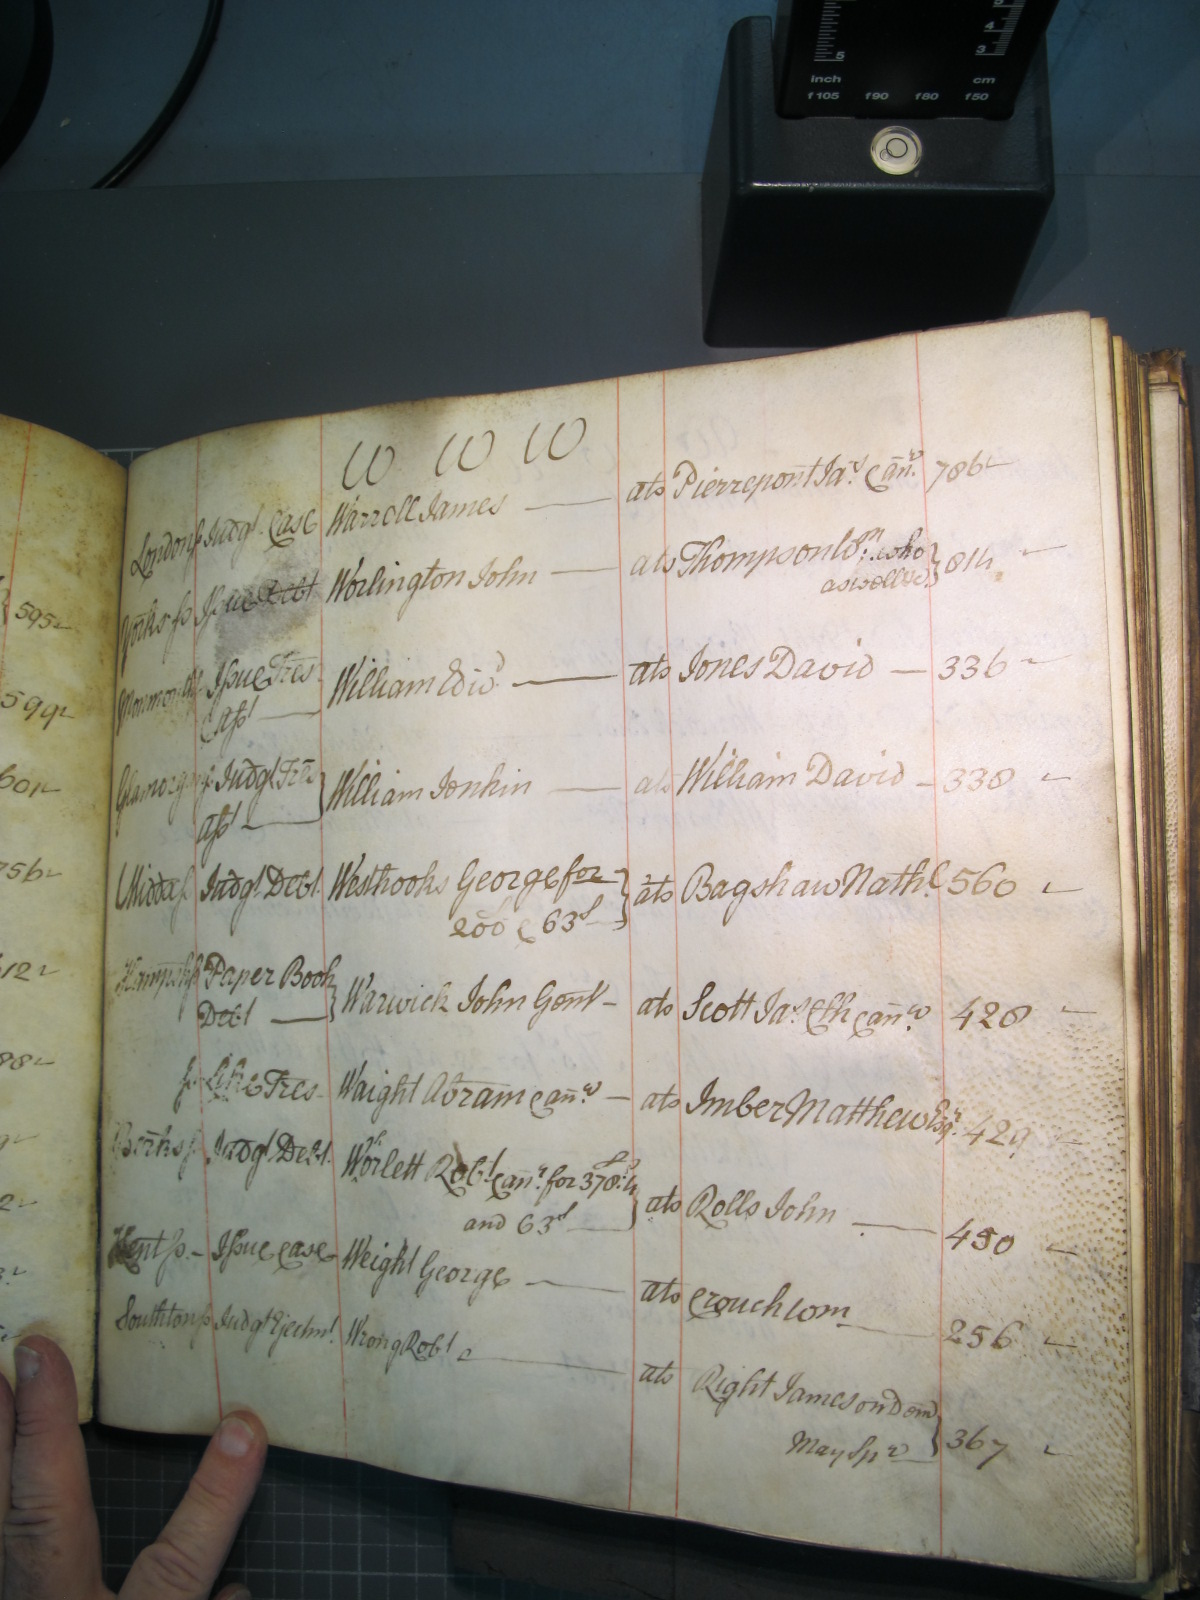 5
5
4
3
inch cm
f105 f90 f80 f50
W W W
Londonss Judgt. Case Warrell James ats Pierrepont Ja.s & an.r 786
Yorkss Issue Debt Worlington John ats Thompson Wm. who
aswell &c } 814
Monmouth Issue Tres William Edwd ats Jones David 336
Asst
Glamorgan Judgt Tres William Jenkin ats William David 338
asst
Middxss Judgt Debt Westbooks George for } ats Bagshaw Nathl 560
200 & 63l
Hampshss Paper Book } Warwick John Gent ats Scott Jas. & an.r 428
Debt
ss Like Tres Waight Abram & an.r ats Imber Matthew Esqr. 429
Berkss Judgt Debt. Worlett Robt & an.r for 378l.
and 63l } ats Rolls John 450
Kentss Issue Case Weight George ats Crouch Wm 256
Southtonss Judgt Ejectmt. Wrong Robt ats Right James on Dem } 367
May
595
599
601
756
612